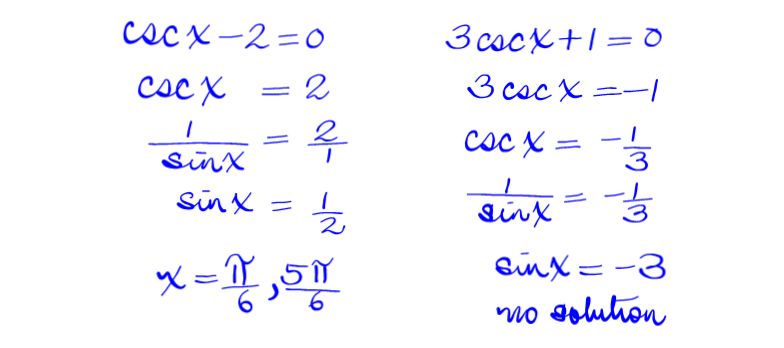 csc x - 2 = 0
csc x = 2
1/sin x = 2/1
sin x = 1/2
x = π/6, 5π/6
3 csc x + 1 = 0
3 csc x = -1
csc x = -1/3
1/sin x = -1/3
sin x = -3
no solution